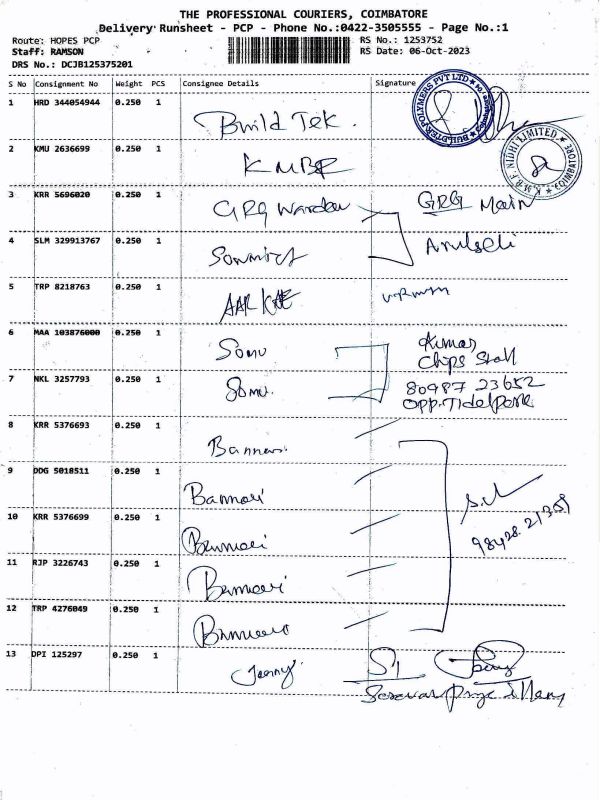 THE PROFESSIONAL COURIERS, COIMBATORE
Delivery Runsheet - PCP - Phone No.:0422-3505555 - Page No.:1
Route: HOPES PCP RS No.: 1253752
Staff: RAMSON RS Date: 06-Oct-2023
DRS No.: DCJB125375201
S No Consignment No Weight PCS Consignee Details Signature
1 HRD 344054944 0.250 1 Build Tek. BUILDTEK POLYMERS PVT LTD
2 KMU 2636699 0.250 1 KMBF K.M.B.F. NIDHI LIMITED COIMBATORE
3 KRR 5696020 0.250 1 GRG Warden GRG Main
4 SLM 329913767 0.250 1
5 TRP 8218763 0.250 1
6 MAA 103876000 0.250 1 Somu Kumar
Chips Stall
7 NKL 3257793 0.250 1 Somu. 80987 23652
Opp. Tidelpark
8 KRR 5376693 0.250 1 Bannari
9 DDG 5018511 0.250 1 Bannari
10 KRR 5376699 0.250 1 Bannari 98428.21359
11 RJP 3226743 0.250 1 Bannari
12 TRP 4276049 0.250 1 Bannari
13 DPI 125297 0.250 1 Jenny